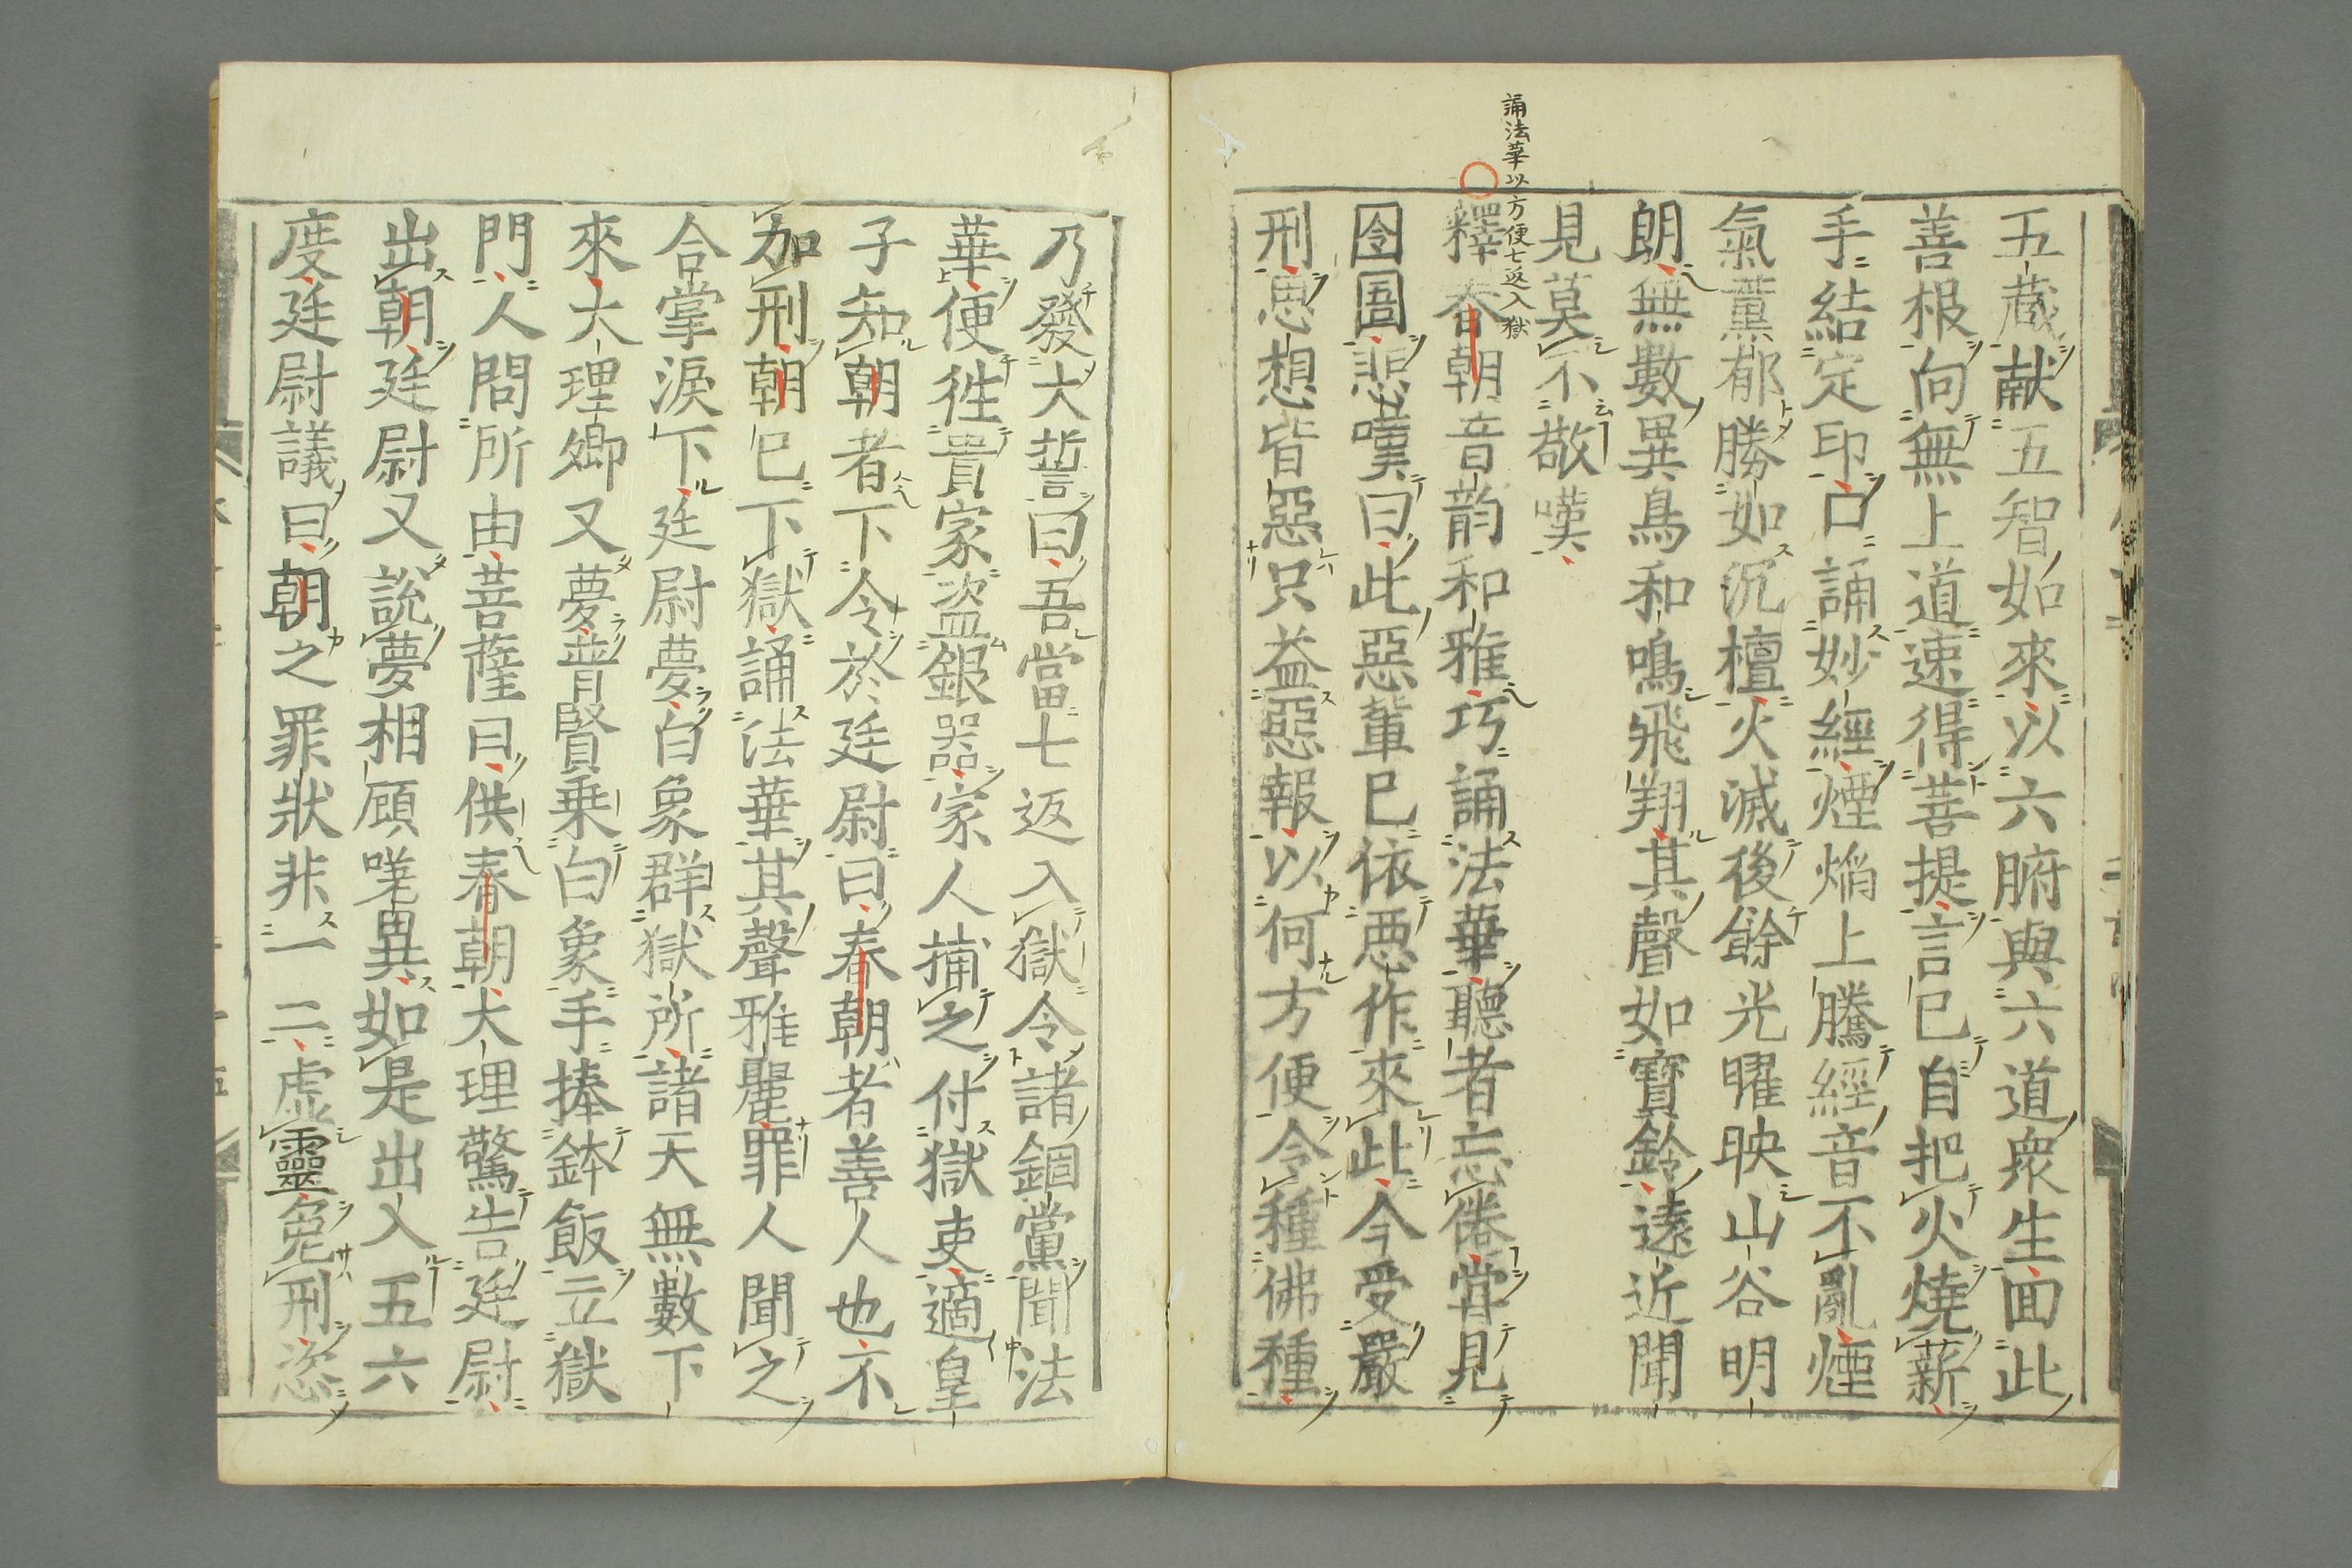 五蔵献五智如來以六腑與六道衆生面此
善根向無上道速得菩提言已自把火燒薪
手結定印口誦妙經煙焔上騰經音不亂煙
氣薫郁勝如沉檀火滅後餘光曜映山谷明
朗無數異鳥和鳴飛翔其聲如寶鈴遠近聞
見莫不敬嘆
誦法華以方便七返入獄
釋春朝音韵和雅巧誦法華聽者忘倦甞見
囹圄悲嘆曰此惡軰已依悪作來此今受嚴
刑思想皆惡只益惡報以何方便令種佛種
乃發大誓曰吾當七返入獄令諸錮黨聞法
華便徃貴家盗銀器家人捕之付獄吏適皇
子知朝者下令於廷尉曰春朝者善人也不
加刑朝已下獄誦法華其聲雅麗罪人聞之
合掌淚下廷尉夢白象群獄所諸天無數下
來大理卿又夢普賢乗白象手捧鉢飯立獄
門人問所由菩薩曰供春朝大理驚告廷尉
出朝廷尉又說夢相顧嘆異如是出入五六
度廷尉議曰朝之罪狀非一二虚靈免刑恣